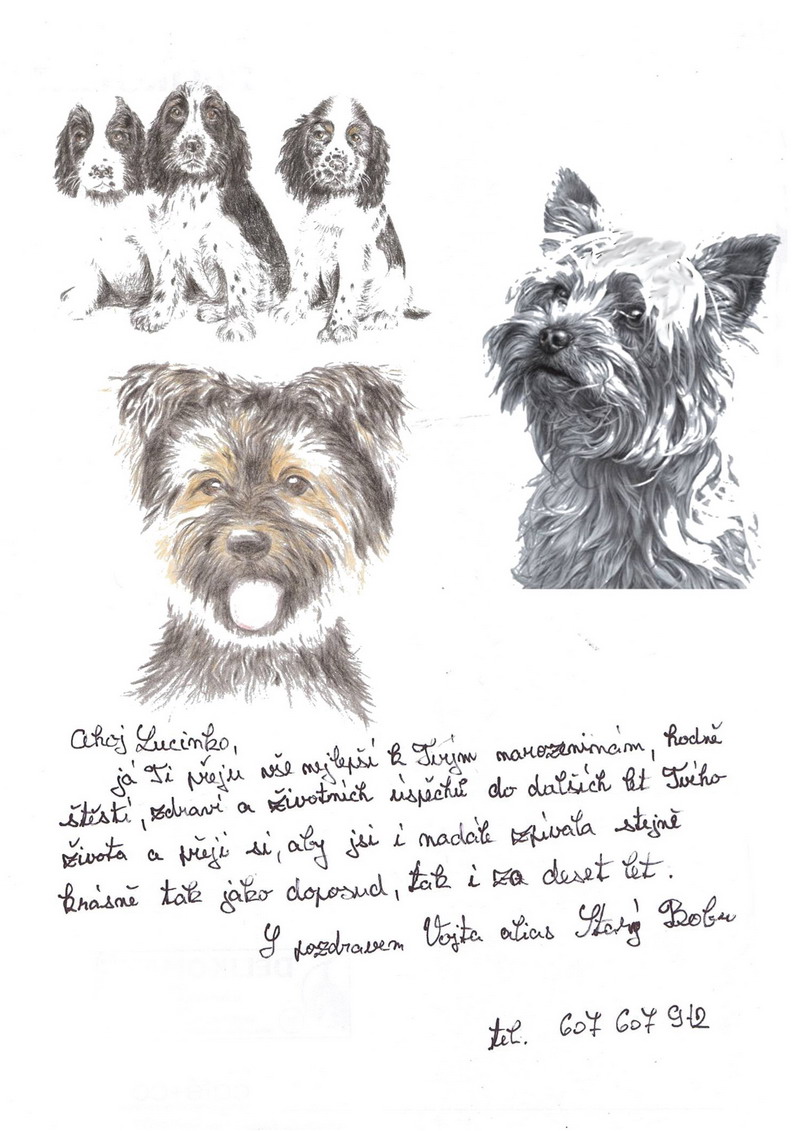 Ahoj Lucinko,
já Ti přeju vše nejlepší k Tvým narozeninám, hodně
štěstí, zdraví a životních úspěchů do dalších let Tvého
života a přeji si, aby jsi i nadále zpívala stejně
krásně tak jako doposud, tak i za deset let.
S pozdravem Vojta alias Starý Bobr
tel. 607 607 912